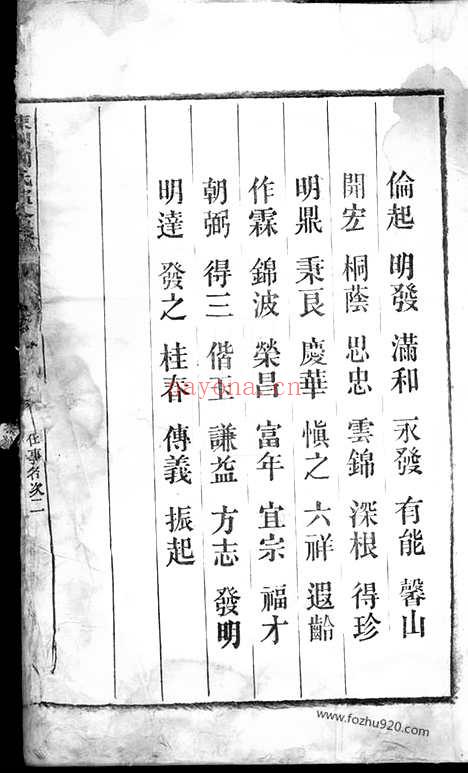 倫起 明發 滿和 永發 有能 馨山
開宏 桐蔭 思忠 雲錦 深根 得珍
明鼎 秉良 慶華 愼之 六祥 遐齡
作霖 錦波 榮昌 富年 宜宗 福才
朝弼 得三 偕玉 謙益 方志 發明
明達 發之 桂春 傳義 振起
任事名次二
nayona.cn
www.fozhu920.com